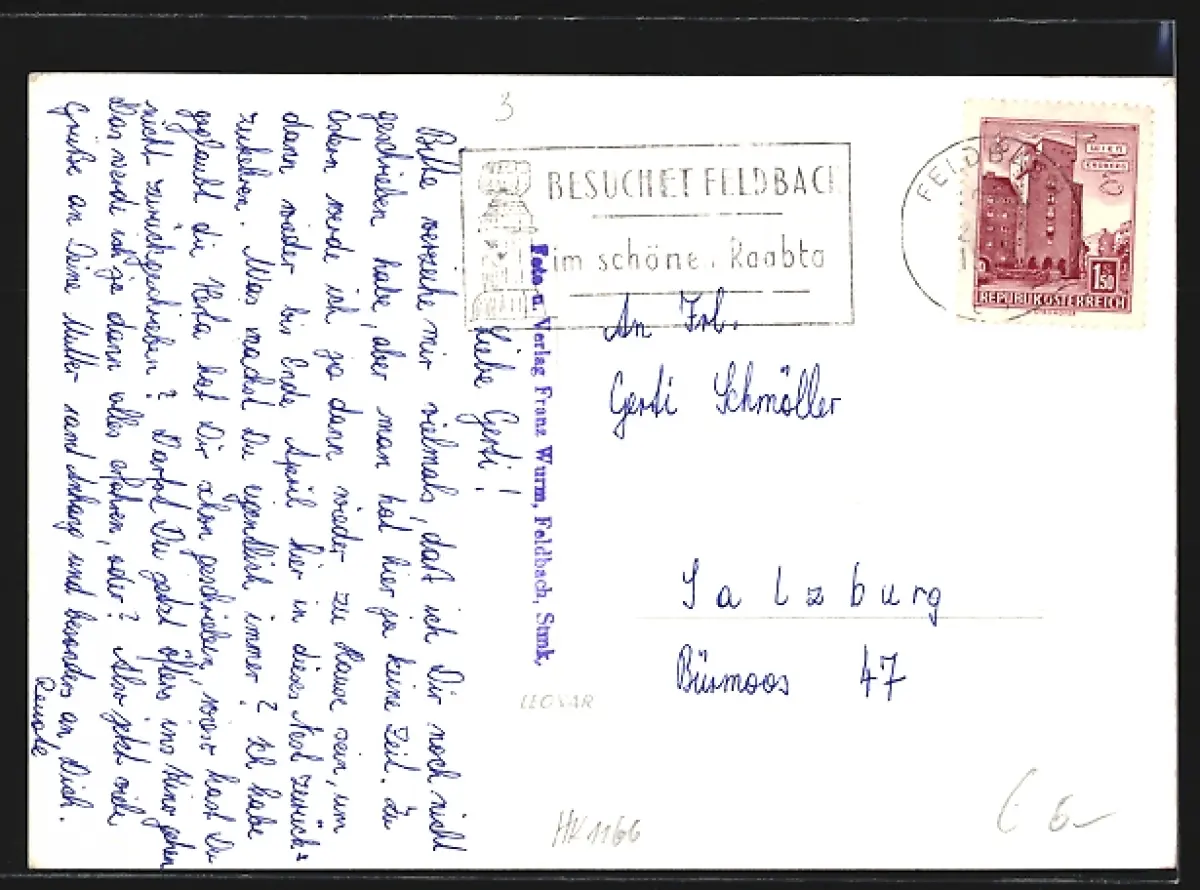 3
BESUCHET FELDBACH
im schönen Raabta
FELDBACH
WIEN
ERDBERG
1.50
REPUBLIK ÖSTERREICH
Foto u. Verlag Franz Wurm, Feldbach, Stmk,
Liebe Gerti!
Bitte verzeihe mir vielmals, daß ich Dir noch nicht
geschrieben habe, aber man hat hier ja keine Zeit. Zu
Ostern werde ich ja dann wieder zu Hause sein, um
dann wieder bis Ende April hier in dieses Nest zurück=
zukehren. Was machst Du eigentlich immer? Ich habe
geglaubt die Herta hat Dir schon geschrieben, wieso hast Du
nicht zurückgeschrieben? Darfst Du jetzt öfters ins Kino gehen
Das werde ich ja dann alles erfahren, oder? Also jetzt viele
Grüße an Deine Mutter samt Anhang und besonders an Dich.
Renate
An Frl.
Gerti Schmöller
Salzburg
Bürmoos 47
LEOVAR
HK 1166
€ 6,-